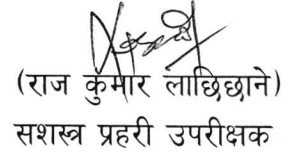 (राज कुमार लाछिछाने)
सशस्त्र प्रहरी उपरीक्षक